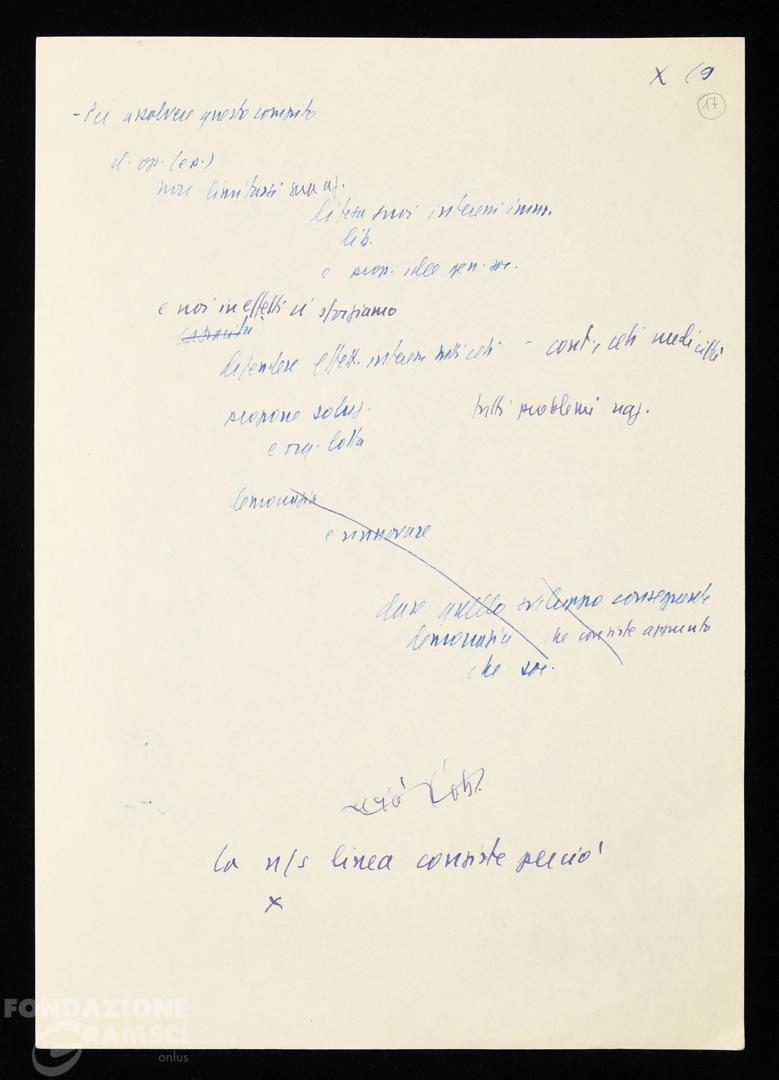 X (9
17
- Per assolvere questo compito
cl. op. (e p.)
non limitarsi sua az.
difesa suoi interessi imm.
lib.
e prop. idee gen. soc.
e noi in effetti ci sforziamo
difendere effett. interessi tutti ceti - cont., ceti medi città
proporre soluz. tutti problemi naz.
e org. lotta
democrazia
e rinnovare
dare quello sviluppo conseguente
democrazia che consiste appunto
che soc.
La n/s linea consiste perciò
x
FONDAZIONE
GRAMSCI
onlus